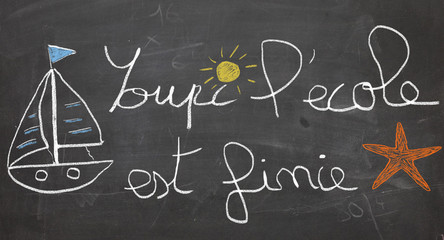 Youpi l'école
est finie